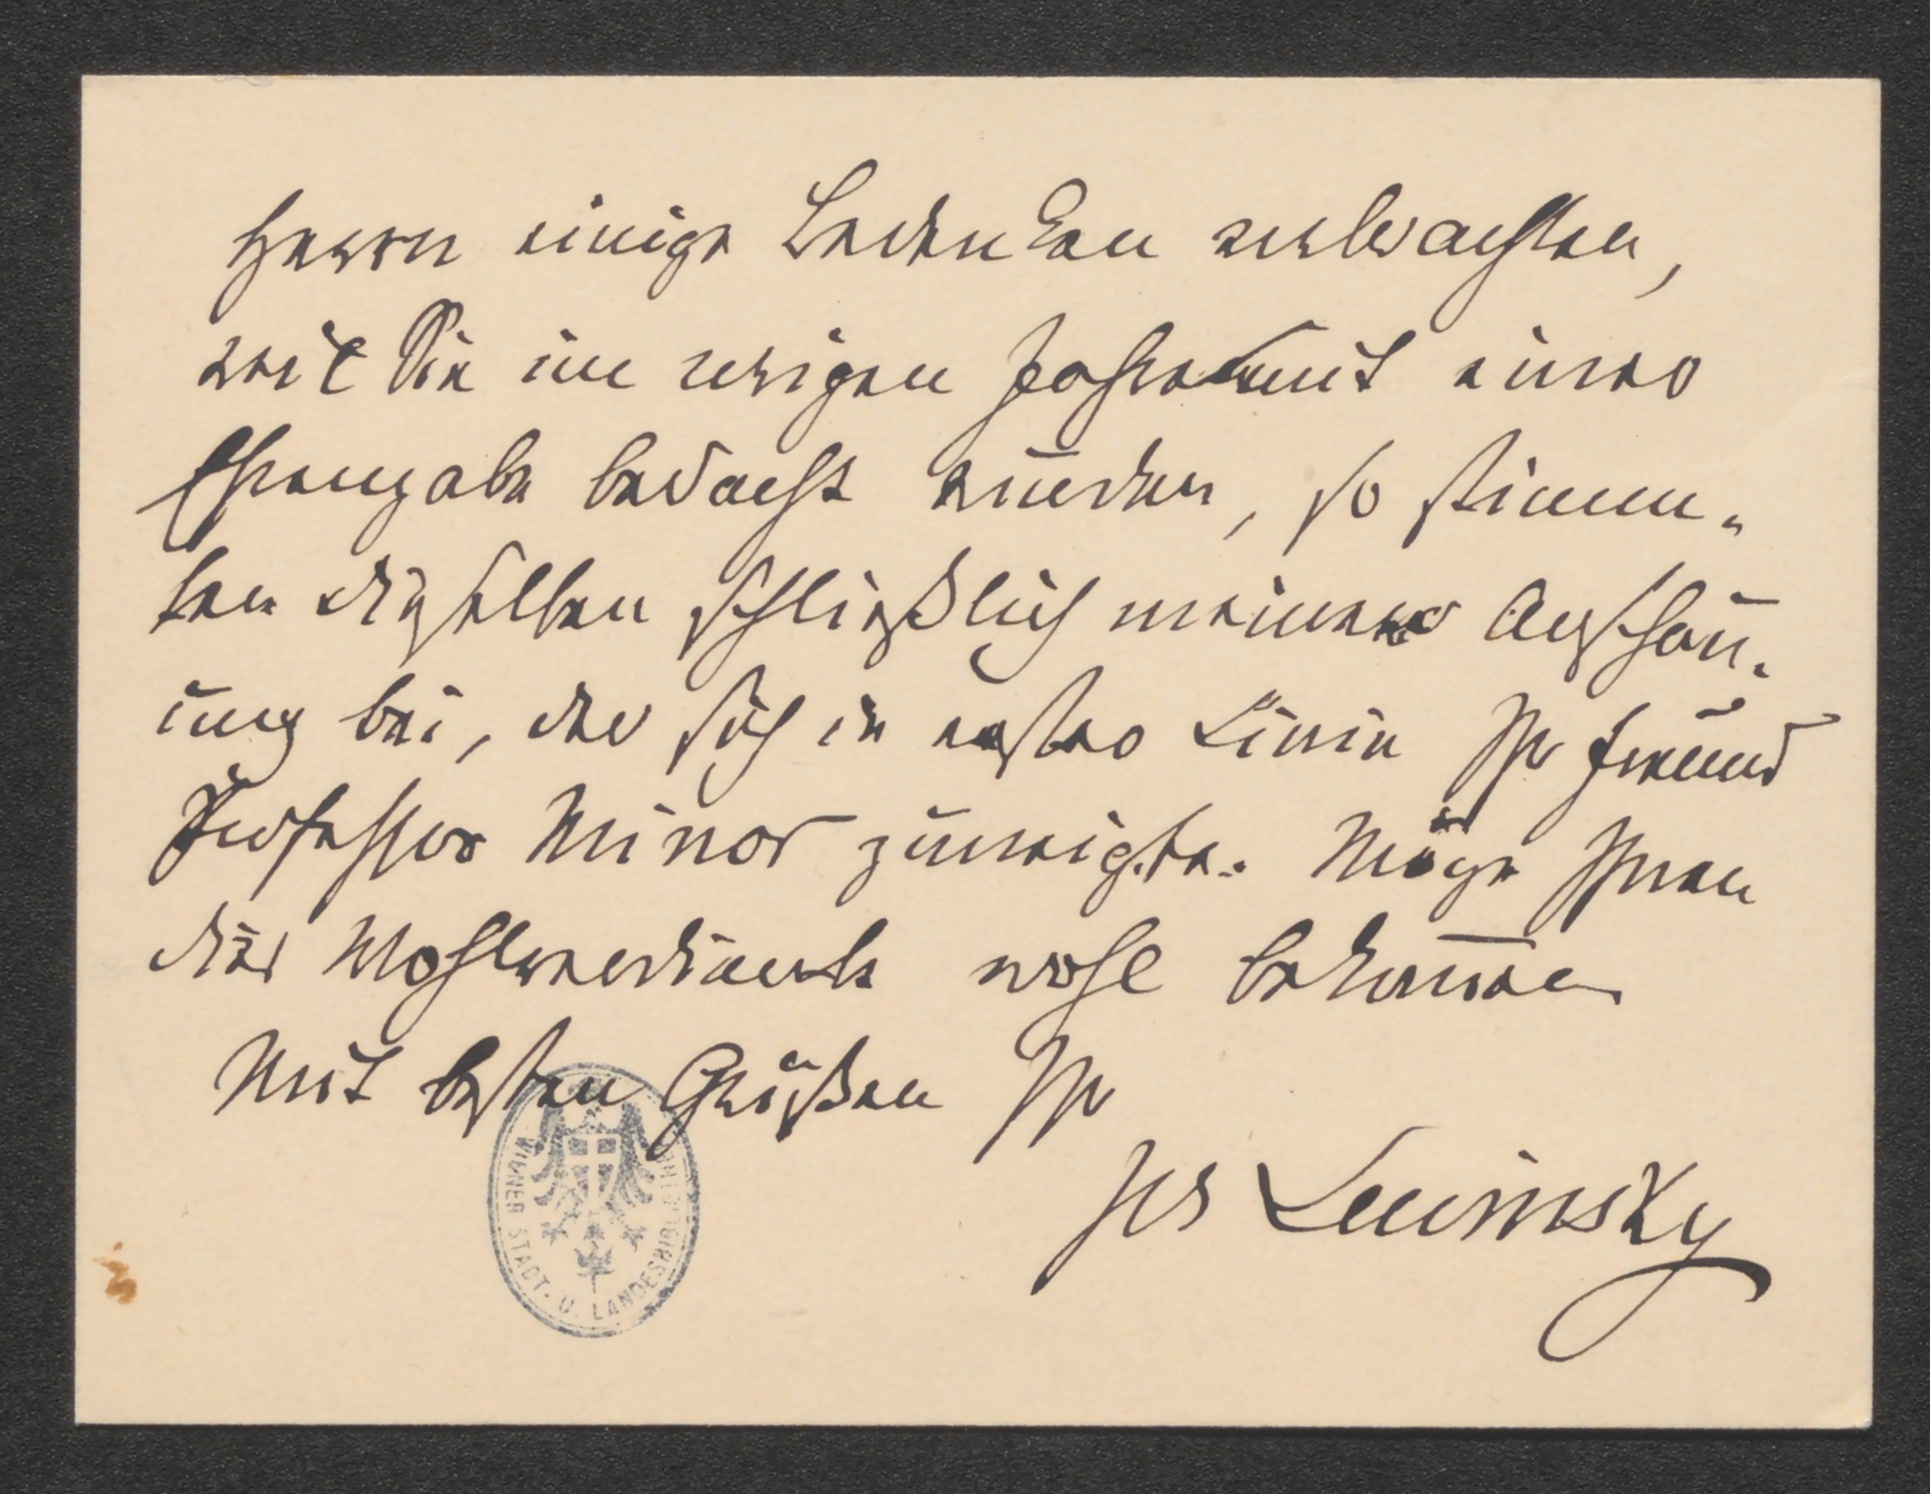 Herren einige Bedenken erbrachten,
weil Sie im vorigen Jahre mit einer
Ehrengabe bedacht wurden, so stimm-
ten dieselben schließlich meiner Anschau-
ung bei, der sich in erster Linie Ihr Freund
Professor Minor zuneigte. Möge Ihnen
das Wohlverdiente wohl bekommen
Mit besten Grüßen Ihr
Jos Lewinsky
WIENER STADT- U. LANDESBIBLIOTHEK